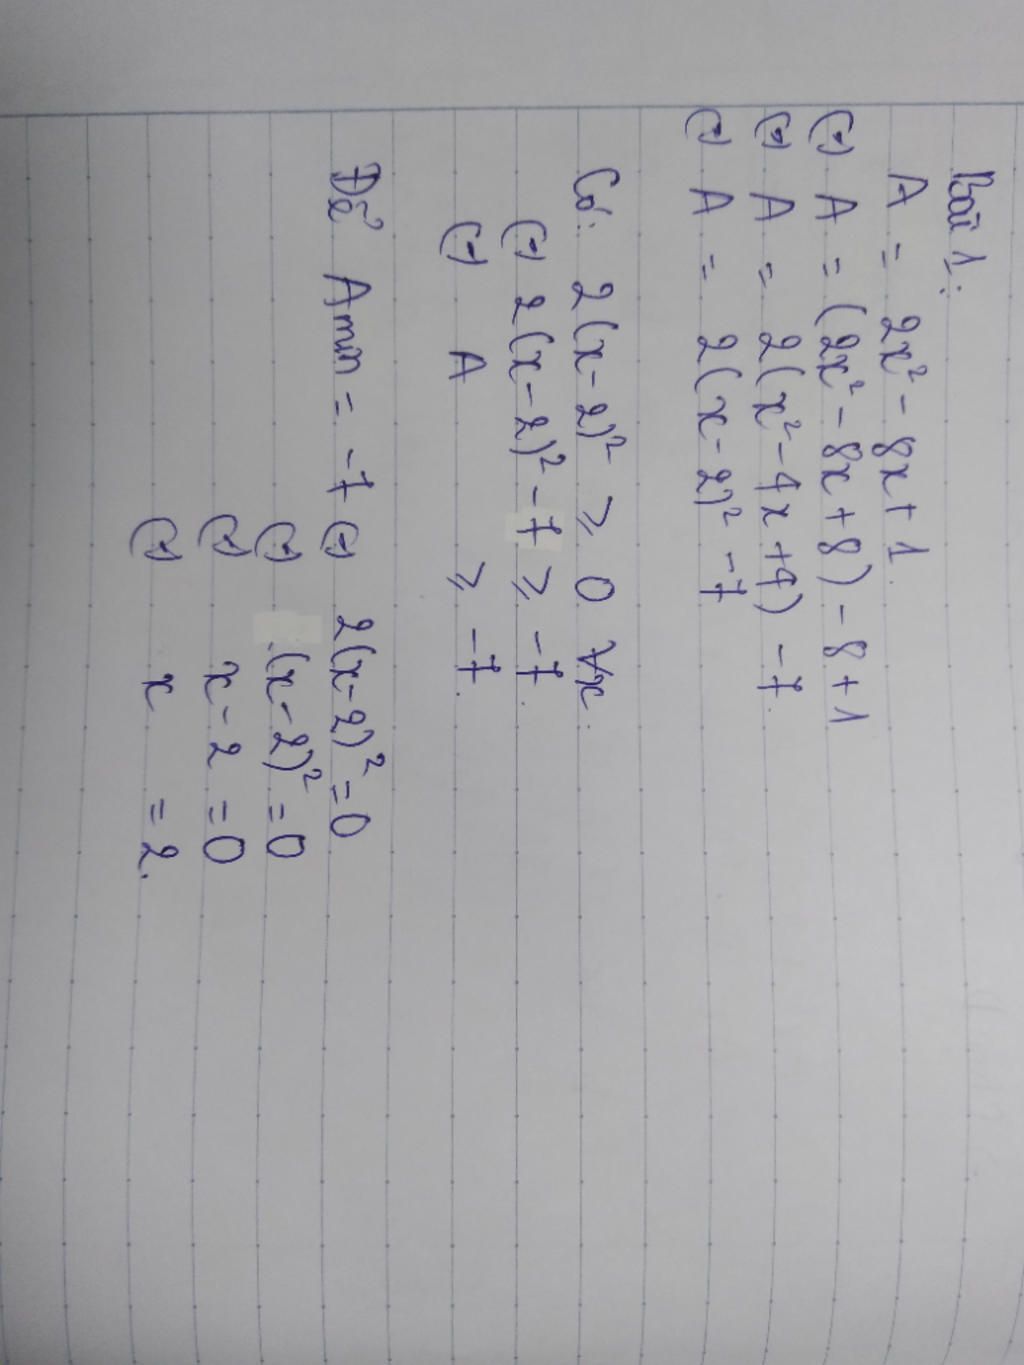 Bài 1:
A = 2x² - 8x + 1
(=) A = (2x² - 8x + 8) - 8 + 1
(=) A = 2(x² - 4x + 4) - 7
(=) A = 2(x - 2)² - 7
Có: 2(x - 2)² ≥ 0 ∀x.
(=) 2(x - 2)² - 7 ≥ -7.
(=) A ≥ -7.
Để Amin = -7 (=) 2(x - 2)² = 0
(=) (x - 2)² = 0
(=) x - 2 = 0
(=) x = 2.